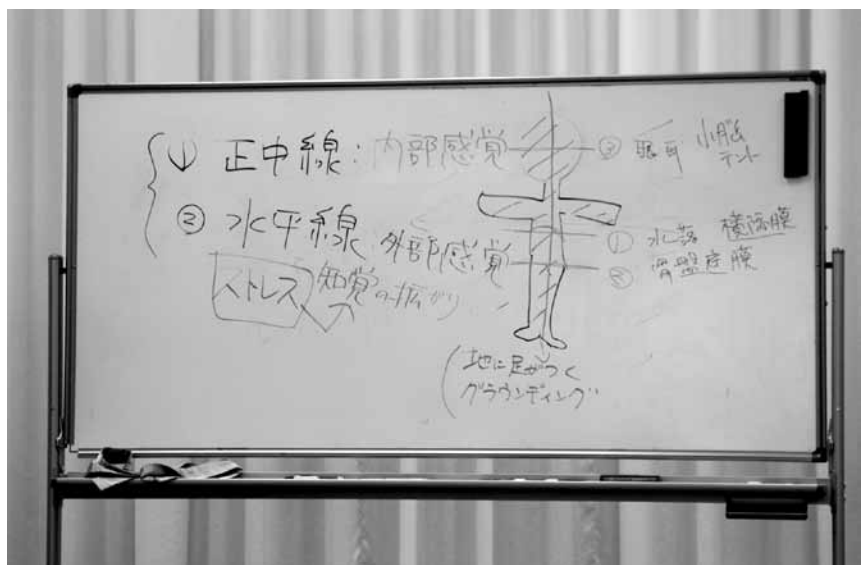 ① 正中線：内部感覚
② 水平線 外部感覚
ストレス 知覚の拡がり
③ 眼耳 小脳テント
① 水落 横隔膜
② 骨盤底膜
(地に足がつく
グラウンディング